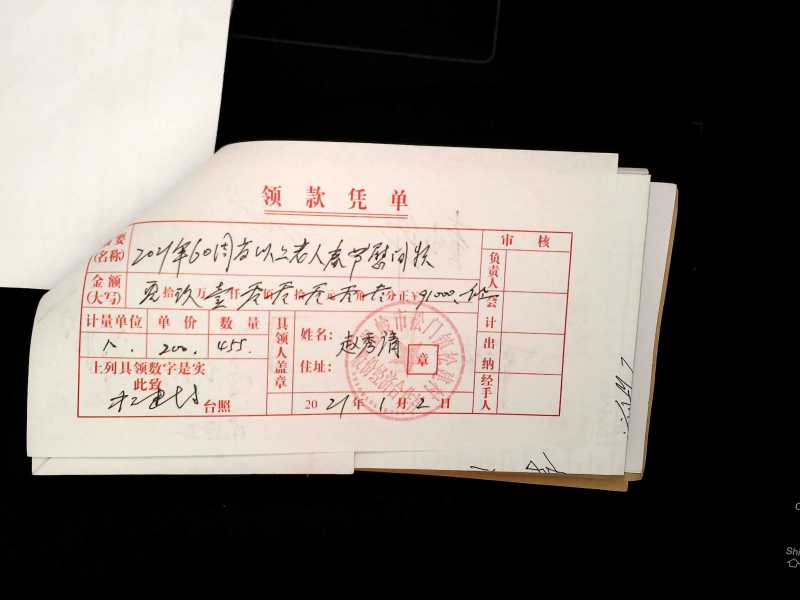 领款凭单
要
(名称)
2021年60周岁以上老人春节慰问款
审核
金额
(大写)
拾玖万壹仟零佰零拾零元零角零分正¥91000.00
负责人
会计
出纳
经手人
计量单位 单价 数量
人. 200. 455.
具领人盖章
姓名：赵秀清
住址：
章
市松门镇
上列具领数字是实
此致
台照
2021年1月2日
Shi